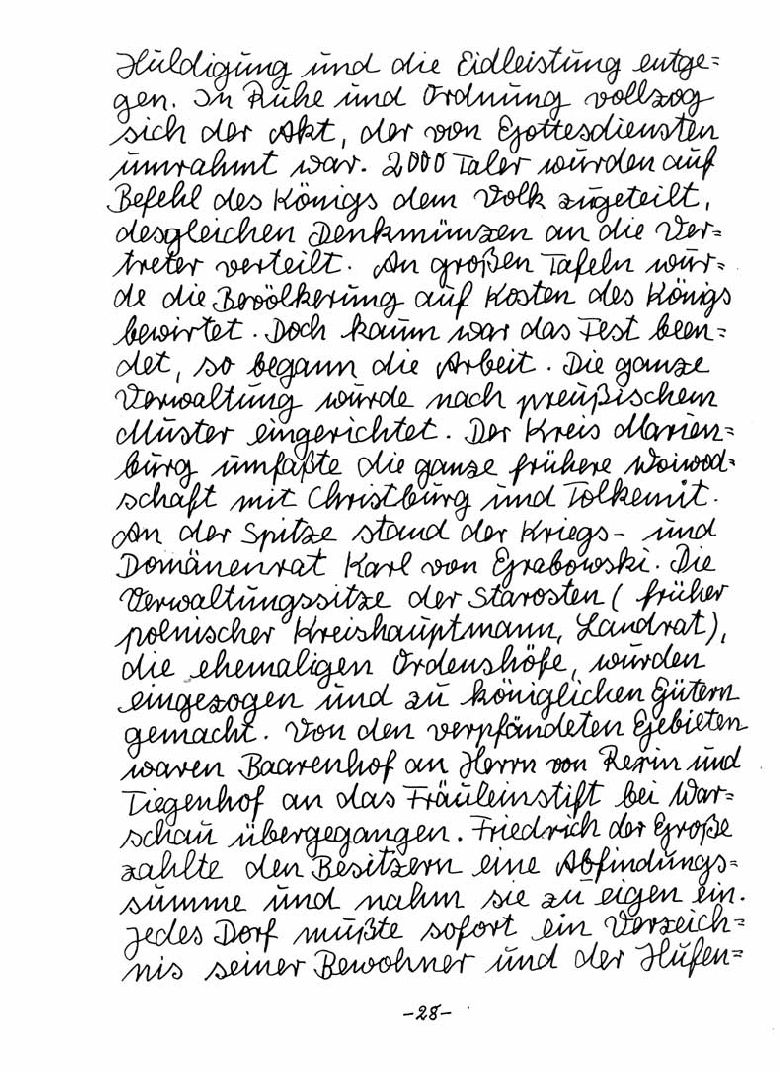 Huldigung und die Eidleistung entge=
gen. In Ruhe und Ordnung vollzog
sich der Akt, der von Gottesdiensten
umrahmt war. 2000 Taler wurden auf
Befehl des Königs dem Volk zugeteilt,
desgleichen Denkmünzen an die Ver=
treter verteilt. An großen Tafeln wur=
de die Bevölkerung auf Kosten des Königs
bewirtet. Doch kaum war das Fest been=
det, so begann die Arbeit. Die ganze
Verwaltung wurde nach preußischem
Muster eingerichtet. Der Kreis Marien=
burg umfaßte die ganze frühere Woiwod=
schaft mit Christburg und Tolkemit.
An der Spitze stand der Kriegs- und
Domänenrat Karl von Grabowski. Die
Verwaltungssitze der Starosten (früher
polnischer Kreishauptmann, Landrat),
die ehemaligen Ordenshöfe, wurden
eingezogen und zu königlichen Gütern
gemacht. Von den verpfändeten Gebieten
waren Baarenhof an Herrn von Rexin und
Tiegenhof an das Fräuleinstift bei War=
schau übergegangen. Friedrich der Große
zahlte den Besitzern eine Abfindungs=
summe und nahm sie zu eigen ein.
Jedes Dorf mußte sofort ein Verzeich=
nis seiner Bewohner und der Hufen=
-28-